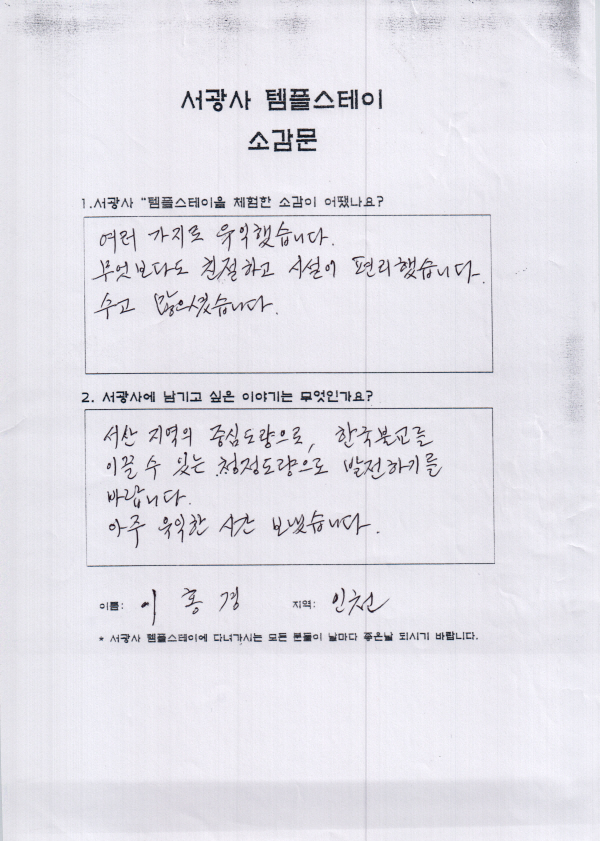 서광사 템플스테이
소감문
1.서광사 “템플스테이을 체험한 소감이 어땠나요?
여러 가지로 유익했습니다.
무엇보다도 친절하고 시설이 편리했습니다.
수고 많으셨습니다.
2. 서광사에 남기고 싶은 이야기는 무엇인가요?
서산 지역의 중심도량으로, 한국불교를
이끌 수 있는 청정도량으로 발전하기를
바랍니다.
아주 유익한 시간 보냈습니다.
이름: 이홍경 지역: 인천
* 서광사 템플스테이에 다녀가시는 모든 분들이 날마다 좋은날 되시기 바랍니다.